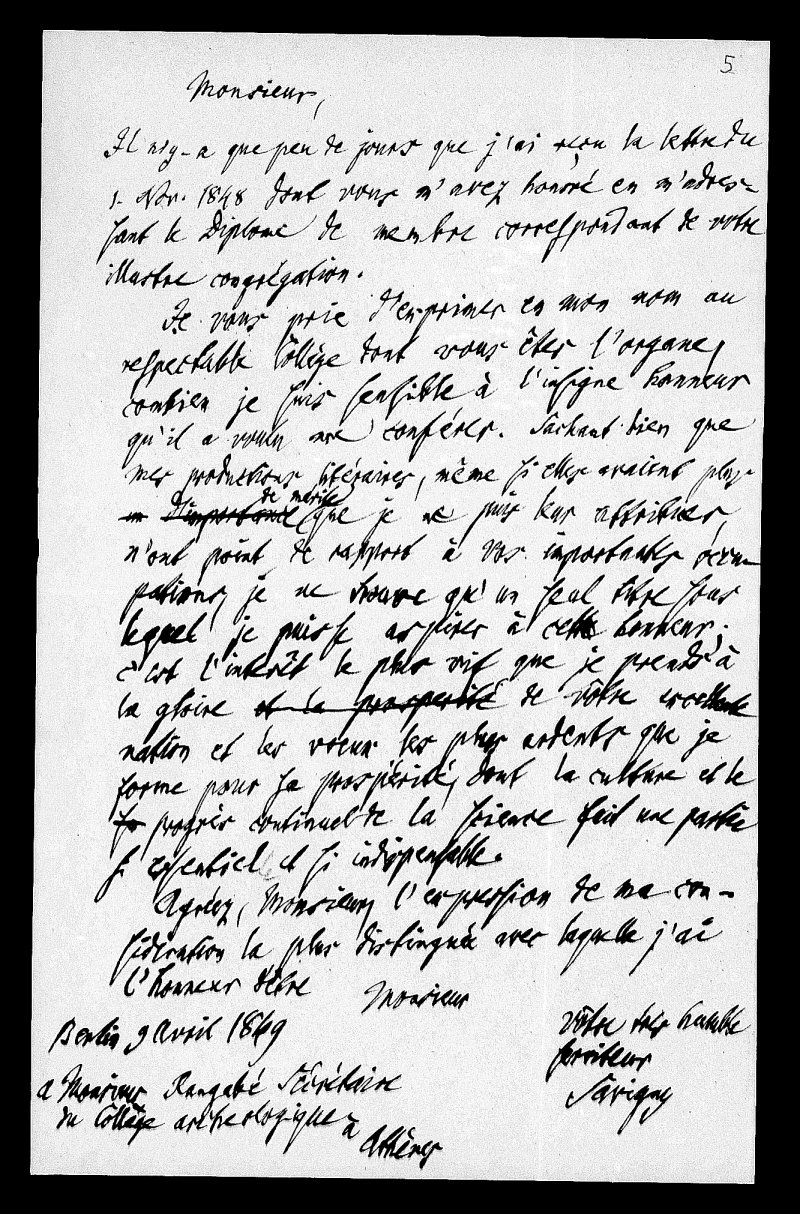 5
Monsieur,
Il n'y-a que peu de jours que j'ai reçu la lettre du
1. Nov. 1848 dont vous m'avez honoré en m'adres=
sant le Diplome de membre correspondant de votre
illustre congrégation.
Je vous prie d'exprimer en mon nom au
respectable Collège dont vous êtes l'organe,
combien je suis sensible à l'insigne honneur
qu'il a voulu me conférer. Sachant bien que
mes productions litéraires, même si elles avaient plus
de mérite
d'importance que je ne puis leur attribuer,
n'ont point de rapport à vos importants occu-
pations, je ne trouve qu'un seul titre sous
lequel je puisse aspirer à cette honneur;
c'est l'intérêt le plus vif que je prends à
la gloire et la prosperité de vôtre excellente
nation et les voeux les plus ardents que je
forme pour sa prospérité, dont la culture et le
sa progrès continuel de la science fait une partie
si essentielle et si indispensable.
Agréez, Monsieur, l'expression de ma con-
sidération la plus distinguée avec laquelle j'ai
l'honneur d'être
Monsieur
Berlin 9 Avril 1849
Vôtre très humble
serviteur
Savigny
a Monsieur Rangabé Sécrétaire
du Collège archeologique à
Athènes